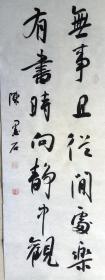 無事且從閒處樂
有書時向靜中觀
陳墨石